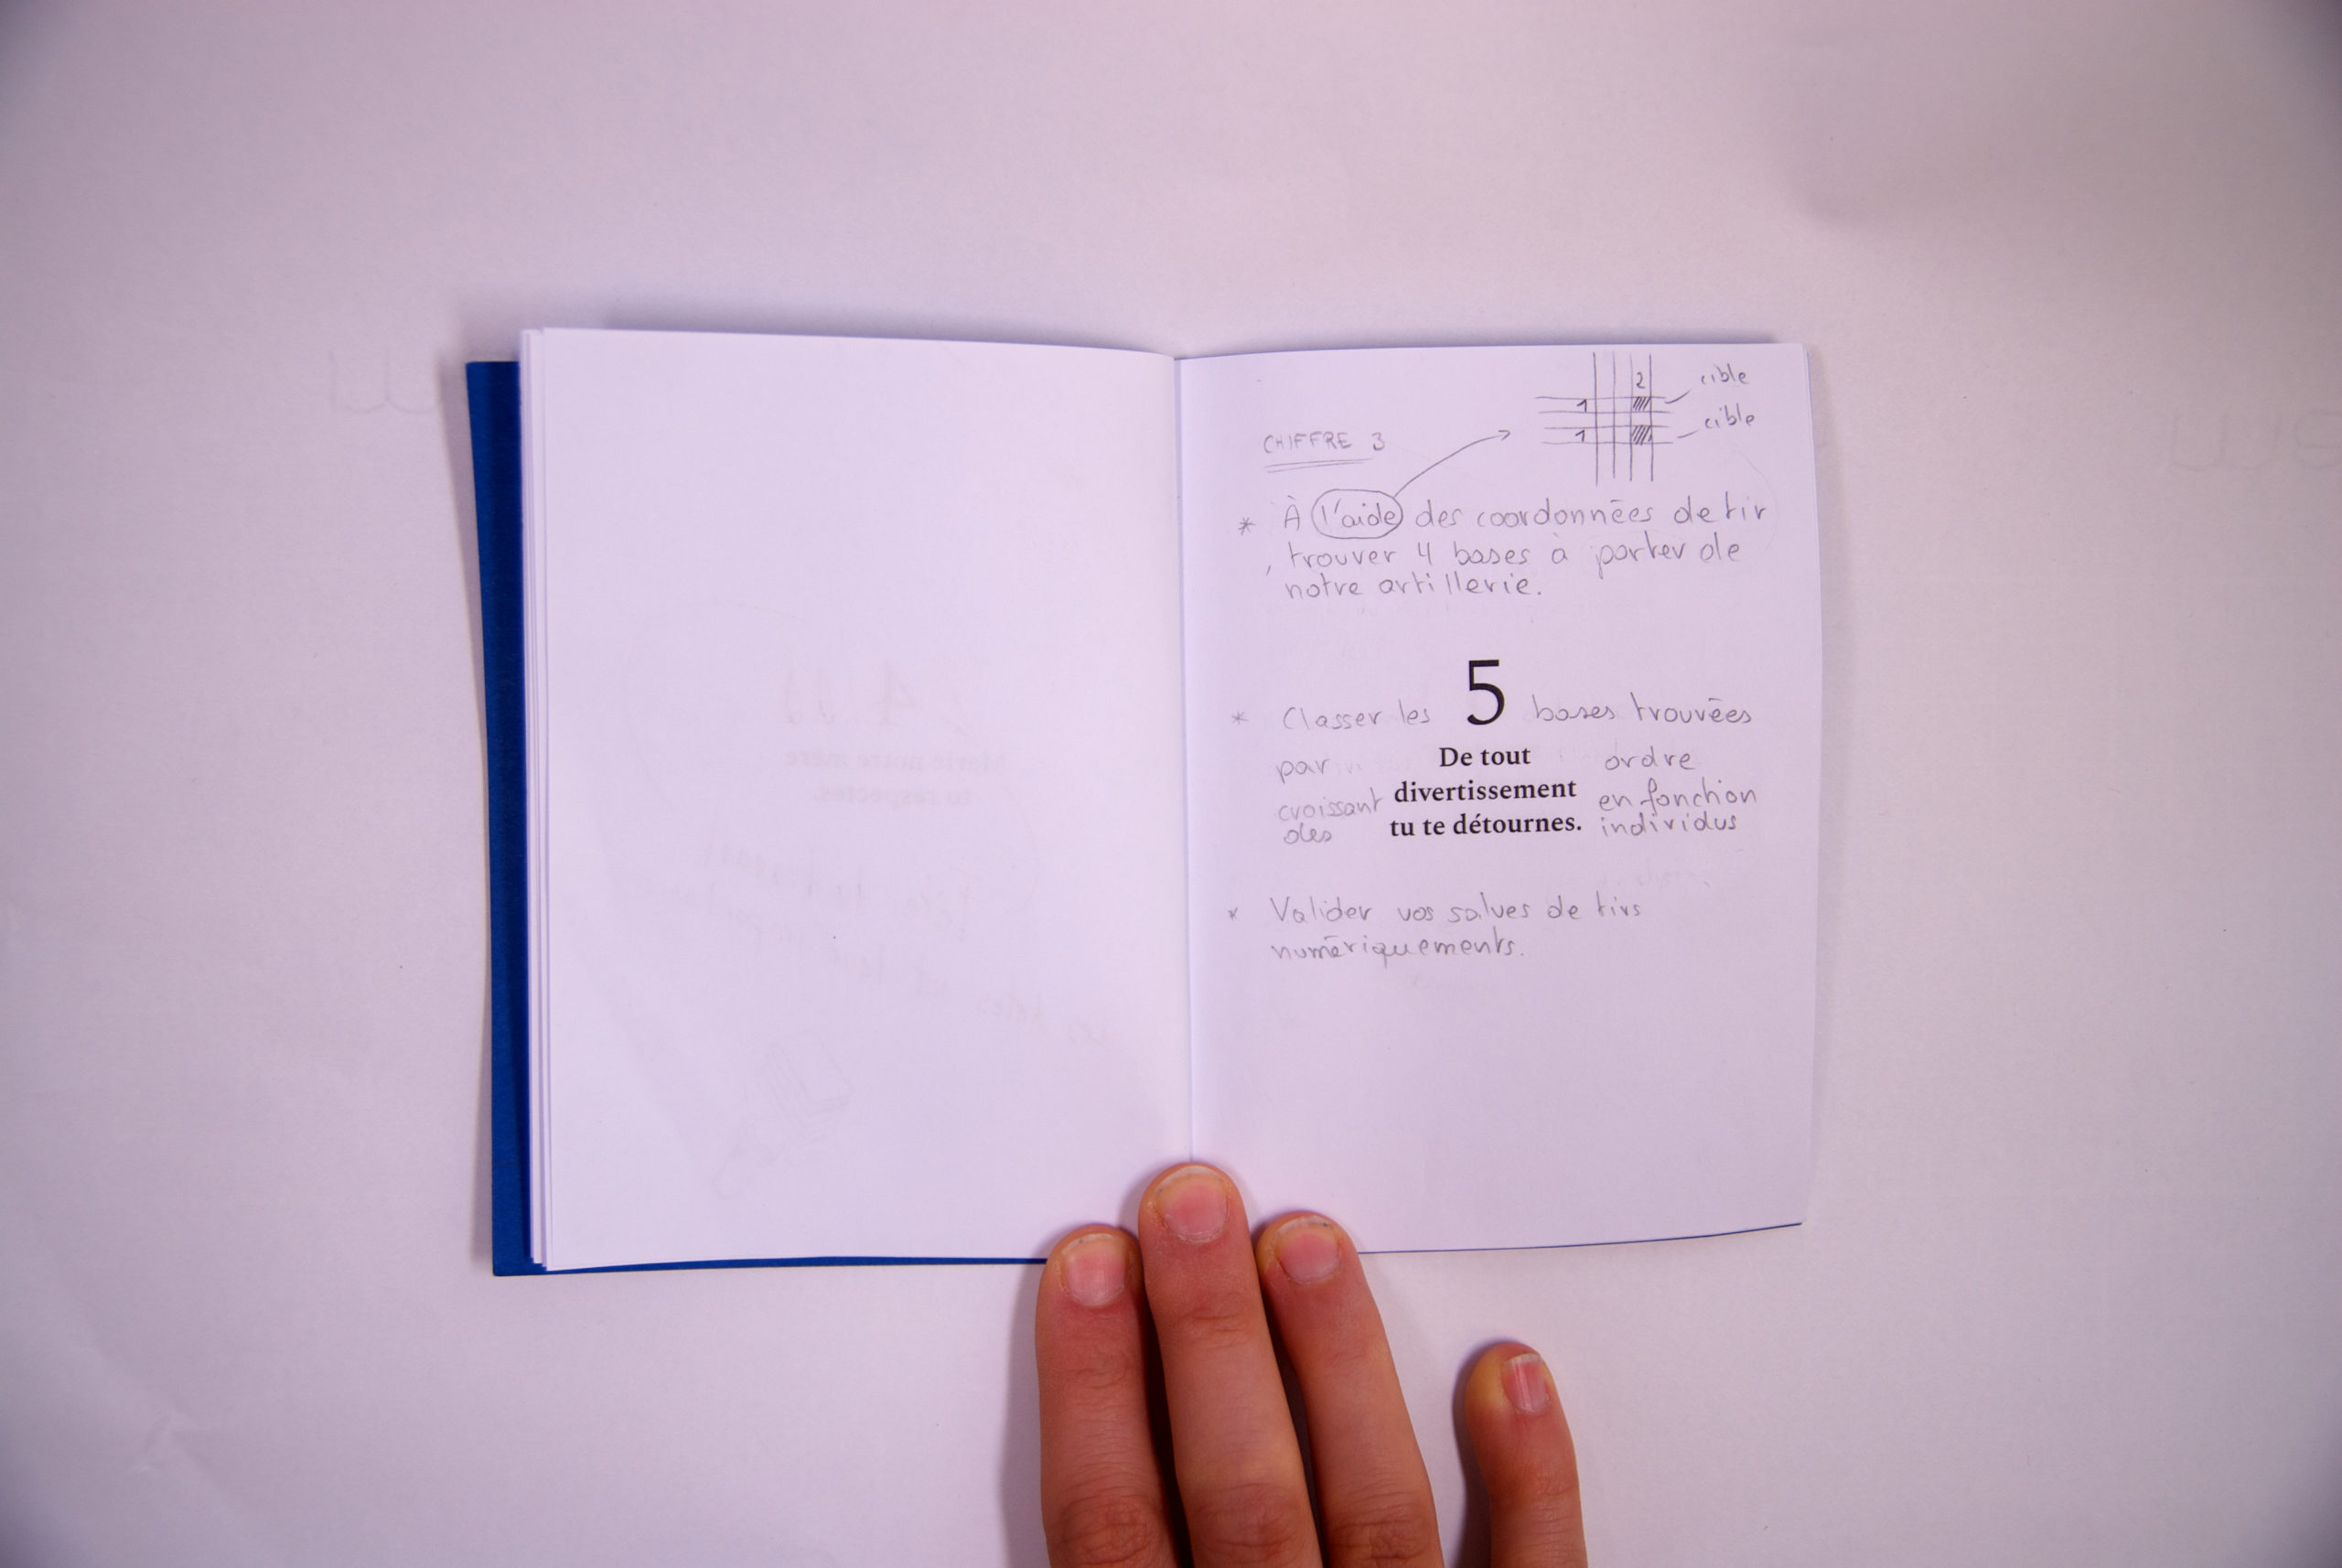 2
cible
1
cible
1
CHIFFRE 3
* À l'aide des coordonnées de tir
, trouver 4 bases à porter de
notre artillerie.
* Classer les 5 bases trouvées
par De tout ordre
croissant divertissement en fonction
des tu te détournes. individus
* Valider vos salves de tirs
numériquements.